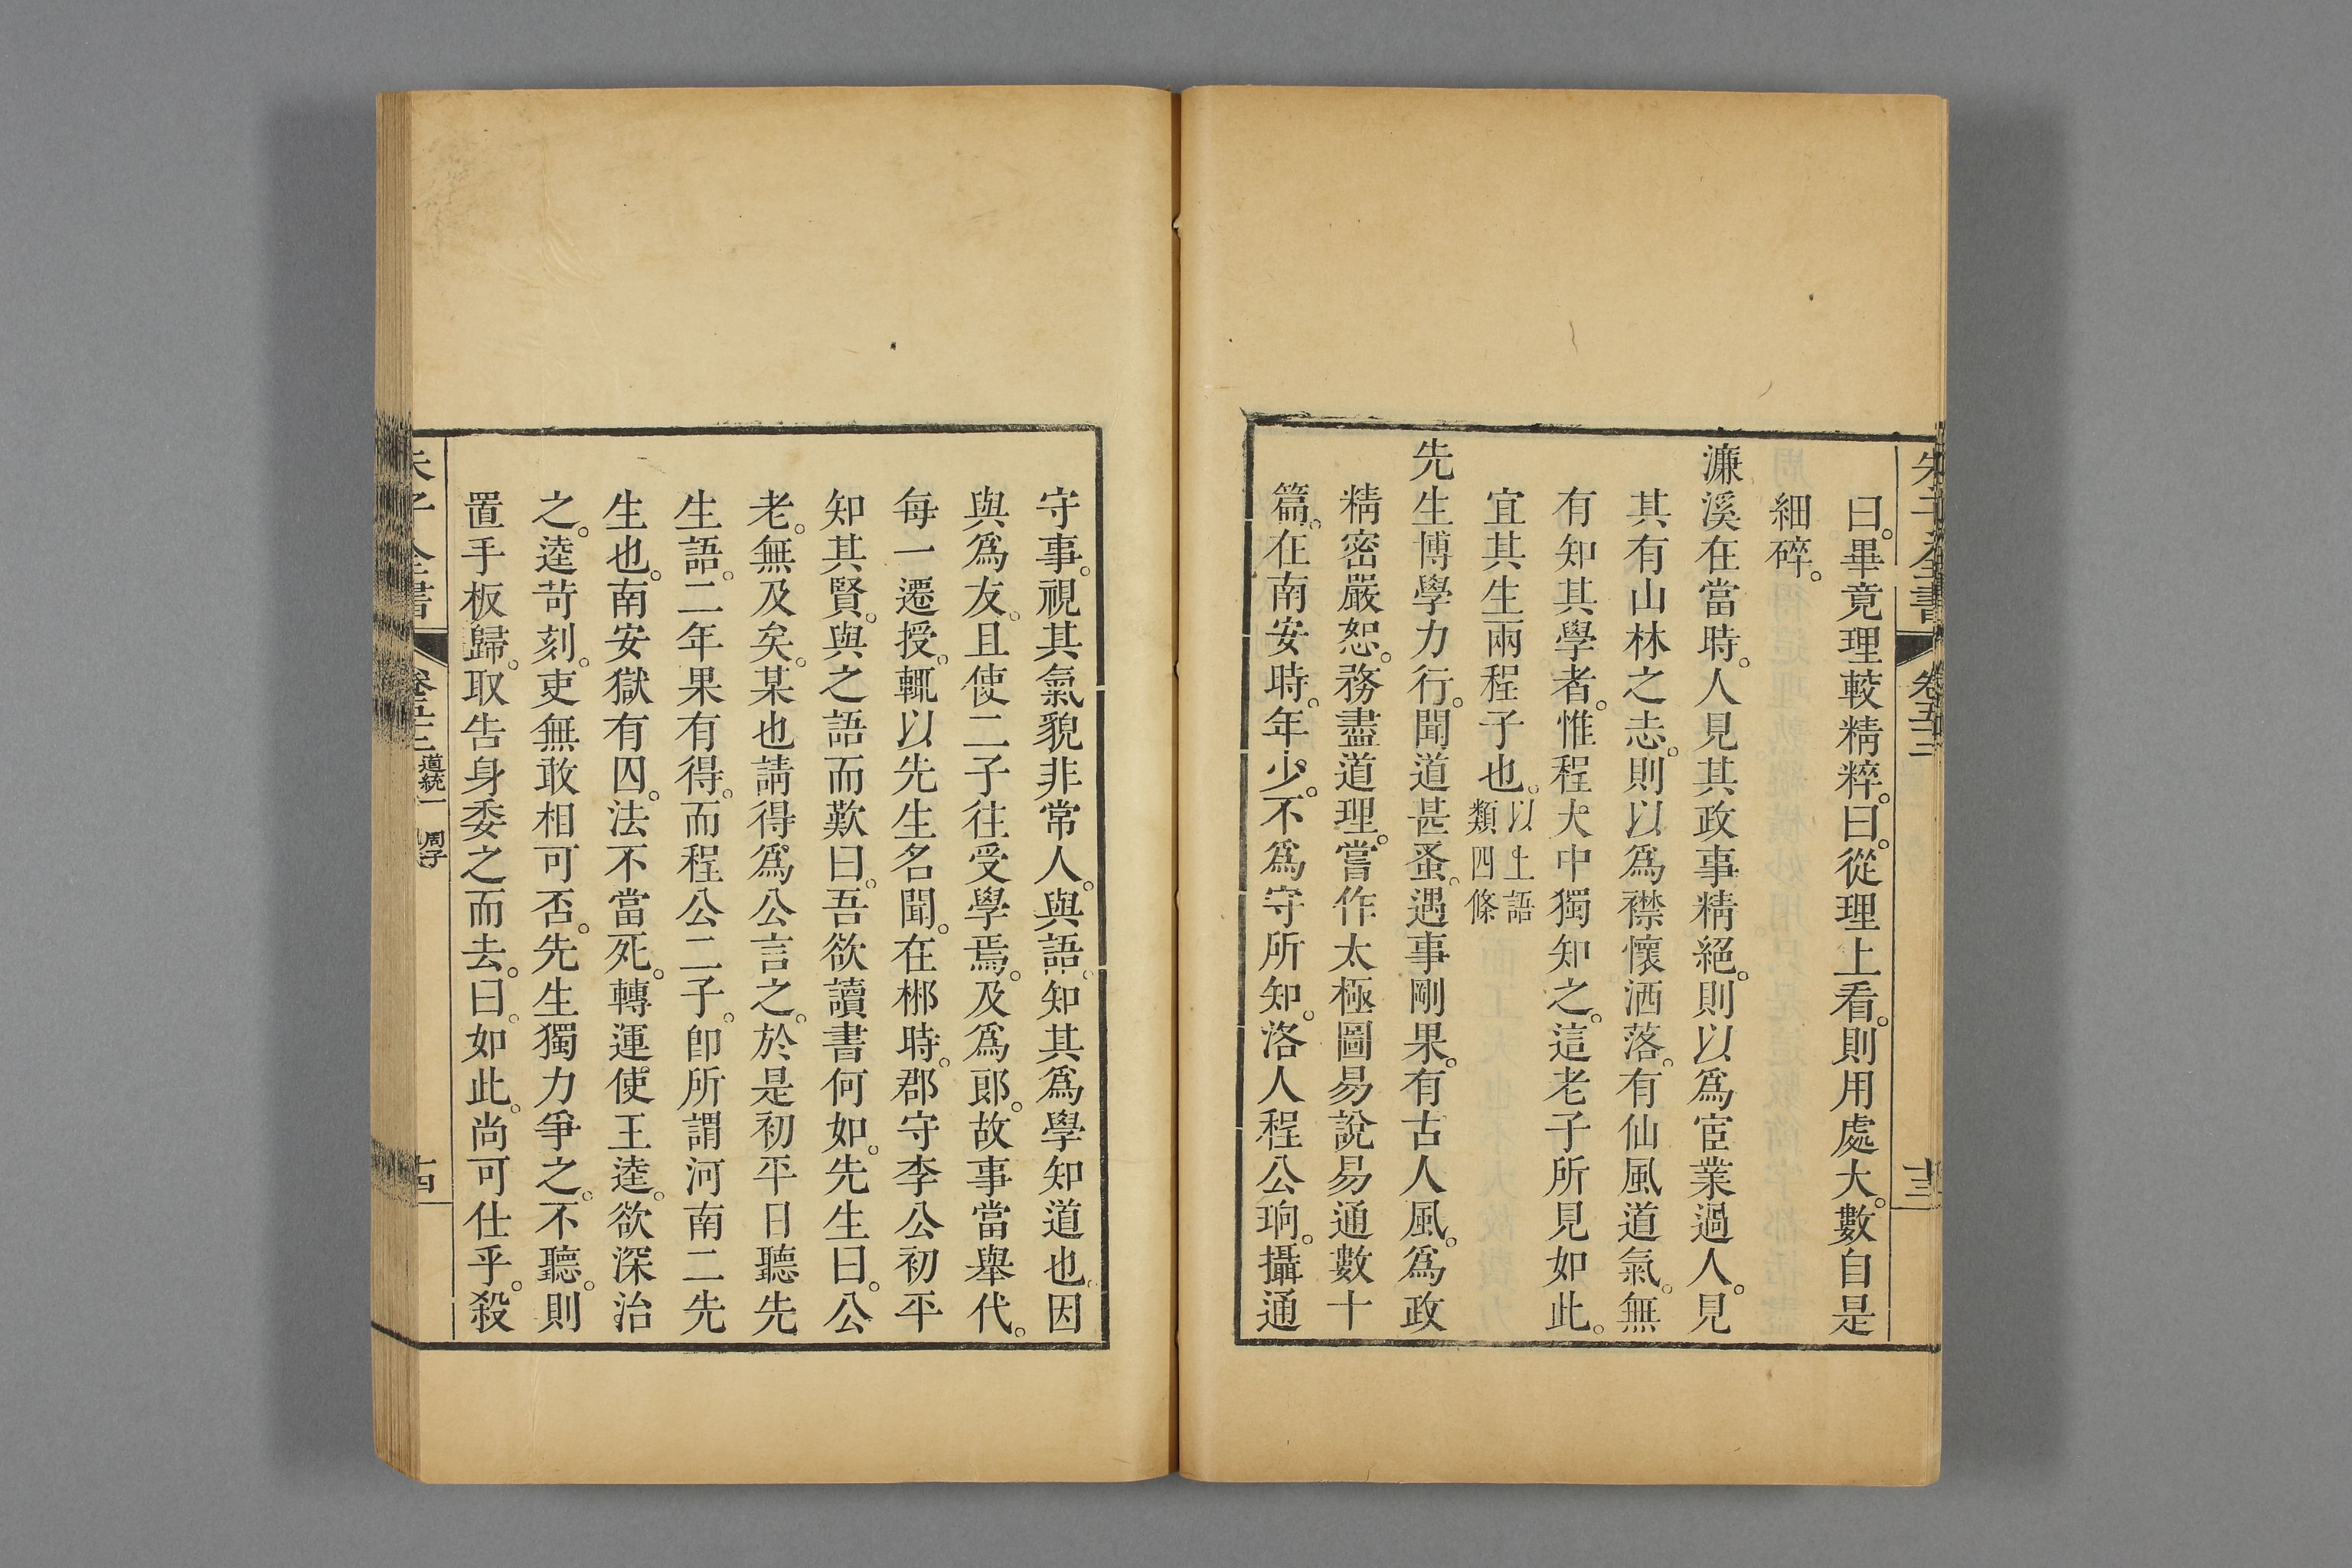 朱子全書 卷五十二 十三
曰。畢竟理較精粹。曰。從理上看。則用處大。數自是
細碎。
濂溪在當時。人見其政事精絕。則以爲宦業過人。見
其有山林之志。則以爲襟懷洒落。有仙風道氣。無
有知其學者。惟程大中獨知之。這老子所見如此。
宜其生兩程子也。以上語類四條
先生博學力行。聞道甚蚤。遇事剛果。有古人風。爲政
精密嚴恕。務盡道理。嘗作太極圖易說易通數十
篇。在南安時。年少。不爲守所知。洛人程公珦。攝通
守事。視其氣貌非常人。與語。知其爲學知道也。因
與爲友。且使二子往受學焉。及爲郞。故事當舉代。
每一遷授。輒以先生名聞。在郴時。郡守李公初平
知其賢。與之語而歎曰。吾欲讀書何如。先生曰。公
老。無及矣。某也請得爲公言之。於是初平日聽先
生語。二年果有得。而程公二子。卽所謂河南二先
生也。南安獄有囚。法不當死。轉運使王逵。欲深治
之。逵苛刻。吏無敢相可否。先生獨力爭之。不聽。則
置手板歸。取告身委之而去。曰。如此。尚可仕乎。殺
朱子全書 卷五十二 道統一 周子 十四